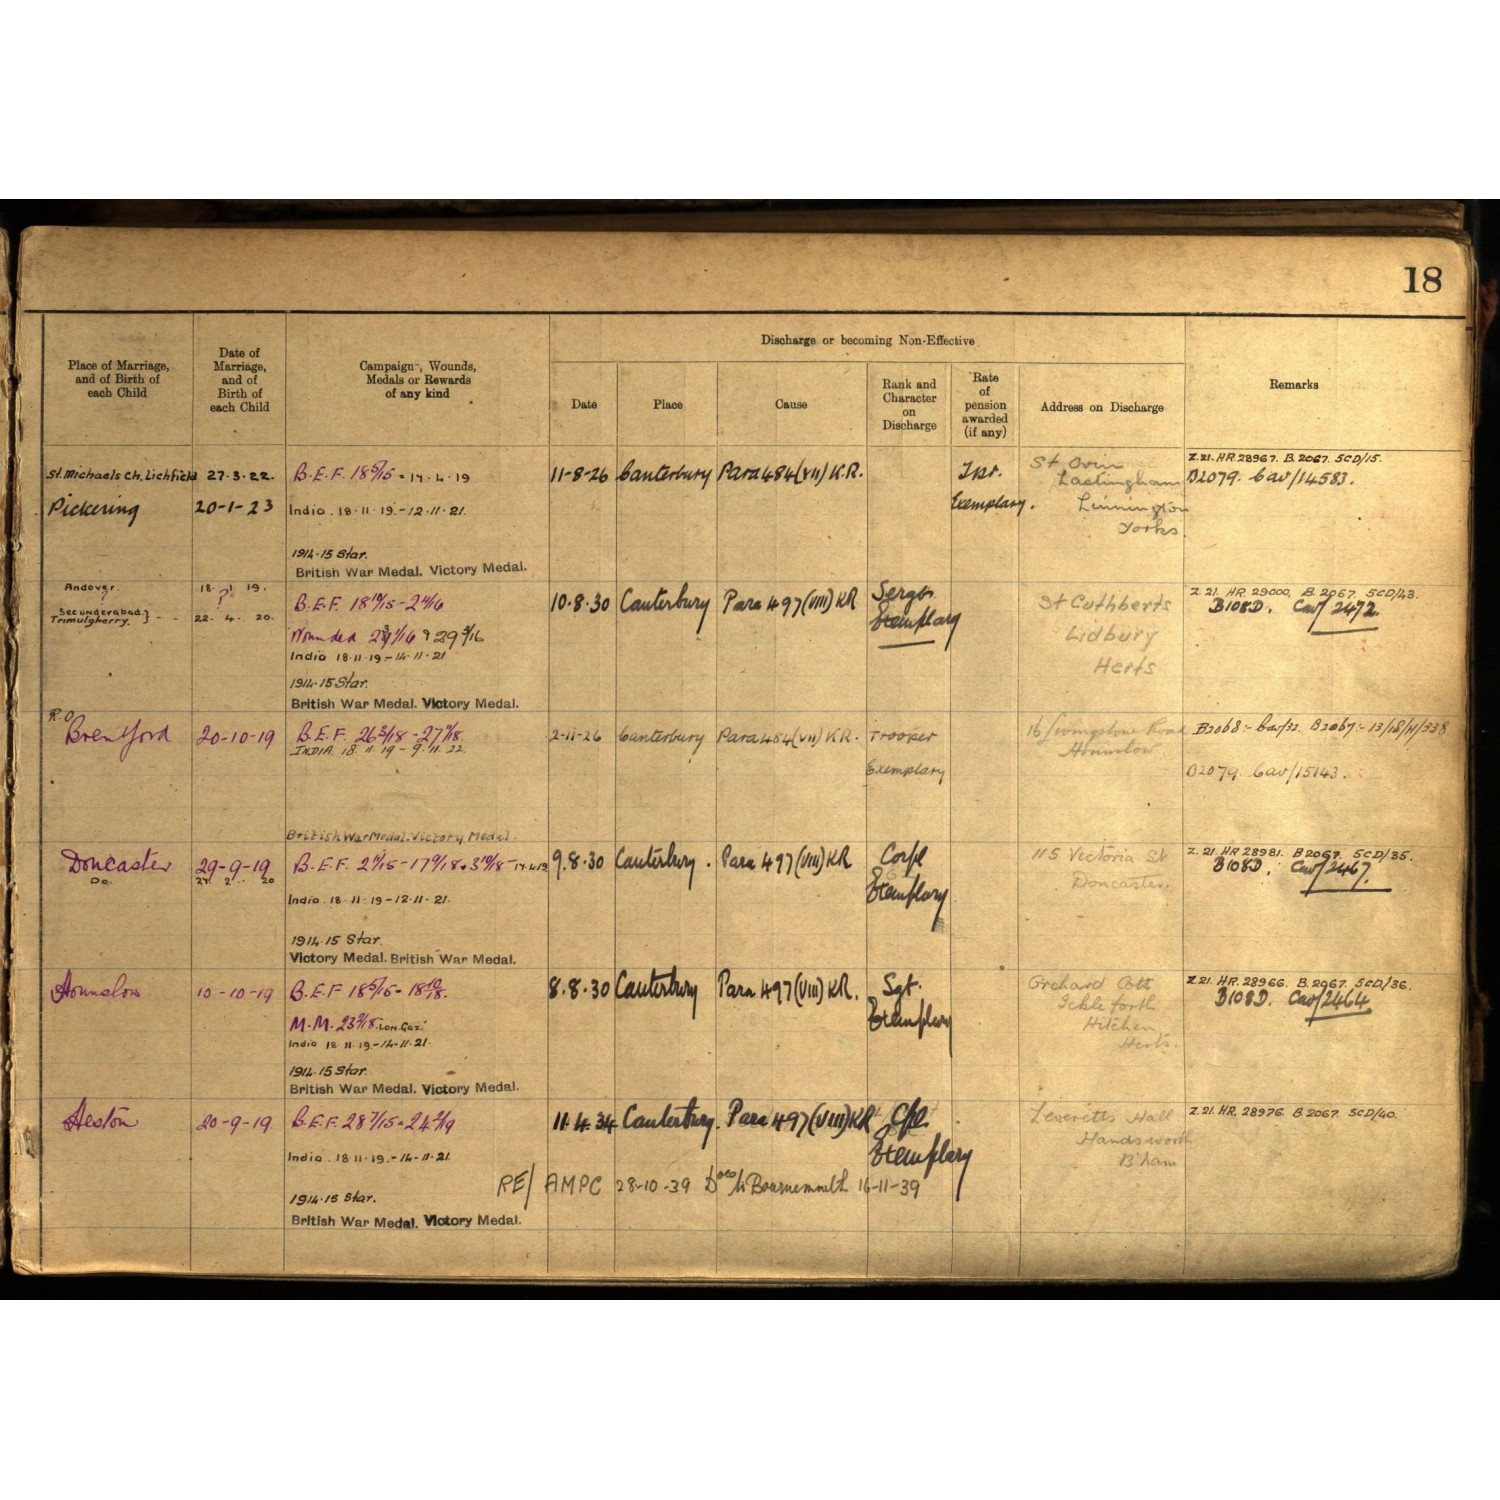 18
Place of Marriage, and of Birth of each Child
Date of Marriage, and of Birth of each Child
Campaign-, Wounds, Medals or Rewards of any kind
Discharge or becoming Non-Effective
Date
Place
Cause
Rank and Character on Discharge
Rate of pension awarded (if any)
Address on Discharge
Remarks
St. Michaels Ch. Lichfield 27.3.22. B.E.F. 18 5/15 - 17.4.19 11-8-26 Canterbury Para 484 (VII) K.R. Tpr. St Ovin Z.21. HR.28967. B.2067. 5CD/15.
Lastingham B2079. Cav/14583.
Pickering 20-1-23 India. 18.11.19.-12.11.21. Exemplary.
Yorks.
1914-15 Star.
British War Medal. Victory Medal.
Andover. 18. 1. 19.
?
B.E.F. 18 10/15 - 2 4/16 10.8.30 Canterbury Para 497 (VIII) KR Sergt. St Cuthberts Z.21. HR 29000. B.2067. 5CD/43.
Secunderabad } Trimulgherry. - - 22. 4. 20. Exemplary B108D. Cav/2472.
Wounded & 29 3/16 Lidbury
India 18.11.19-14.11.21 Herts
1914-15 Star.
British War Medal. Victory Medal.
R O
Brentford 20-10-19 B.E.F. 26 3/18 - 27 11/18. 2-11-26 Canterbury Para 484 (VII) K.R. Trooper 16 Livingstone Road B2068:- Cav/32. B2067:- 13/18/H/338
INDIA. 18.11.19 - 9.11.22. Hounslow
Exemplary B2079. Cav/15143.
British War Medal. Victory Medal.
Doncaster 29-9-19 B.E.F. 9.8.30 Canterbury. Para 497 (VIII) KR Corpl 115 Victoria St Z.21. HR 28981. B2067. 5CD/35.
Do. 24. 2. 20 Exemplary Doncaster. B108D. Cav/2467.
India. 18.11.19-12.11.21.
1914-15 Star.
Victory Medal. British War Medal.
Hounslow 10-10-19 B.E.F. 18 5/15 - 18 10/18. 8.8.30 Canterbury Para 497 (VIII) KR. Sgt. Orchard Cott Z.21. HR. 28966. B.2067. 5CD/36.
Exemplary Ickleforth B108D. Cav/2464
M.M. 23 2/18. Lon. Gaz. Hitchen
India 18.11.19.-14-11-21. Herts.
1914-15 Star.
British War Medal. Victory Medal.
Heston 20-9-19 B.E.F. 28 7/15 - 24 2/19 11.4.34 Canterbury. Para 497 (VIII) KR Cpl Leveretts Hall Z.21. HR. 28976. B.2067. 5CD/40.
Exemplary Handsworth
India. 18.11.19.-14-11-21. B'ham
RE/ AMPC 28-10-39 Bournemouth 16-11-39
1914-15 Star.
British War Medal. Victory Medal.